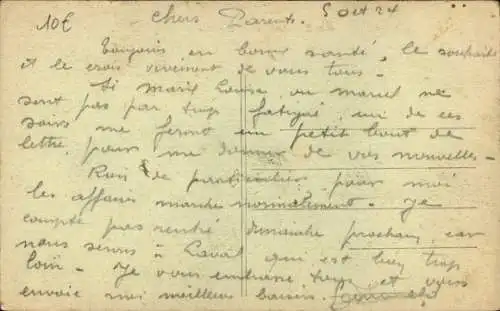 10€
Chers Parents. 5 Oct 24
Toujours en bonne santé, le souhaite
et le crois vivement de vous tous.
Si Marie Louise ou Marcel ne
sont pas par trop fatigué, un de ces
soirs me feront un petit bout de
lettre pour me donner de vos nouvelles -
Rien de particulier pour moi
les affaires marche normalement. Je
compte pas rentré dimanche prochain, car
nous serons à Laval qui est bien trop
loin - Je vous embrasse tous et vous
envoie mes meilleurs baisers.